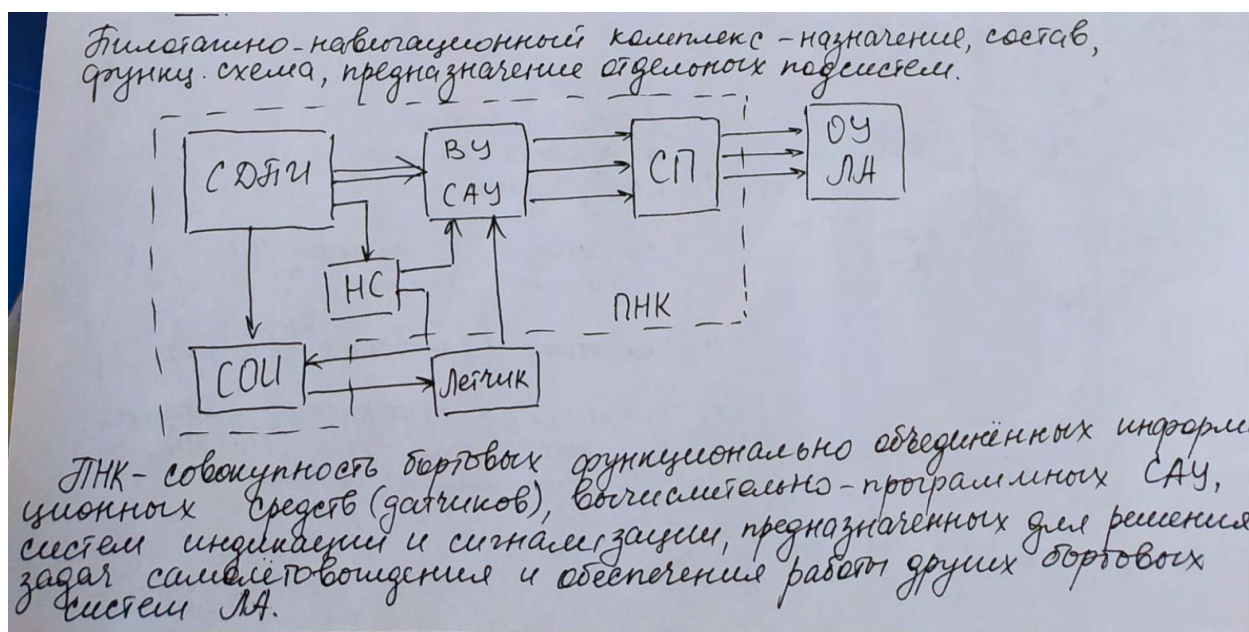 Пилотажно-навигационный комплекс - назначение, состав,
функц. схема, предназначение отдельных подсистем.
СДПИ
ВУ
САУ
СП
ОУ
ЛА
НС
ПНК
СОИ
Летчик
ПНК - совокупность бортовых функционально объединённых информ
ционных средств (датчиков), вычислительно-программных САУ,
систем индикации и сигнализации, предназначенных для решения
задач самолётовождения и обеспечения работы других бортовых
систем ЛА.